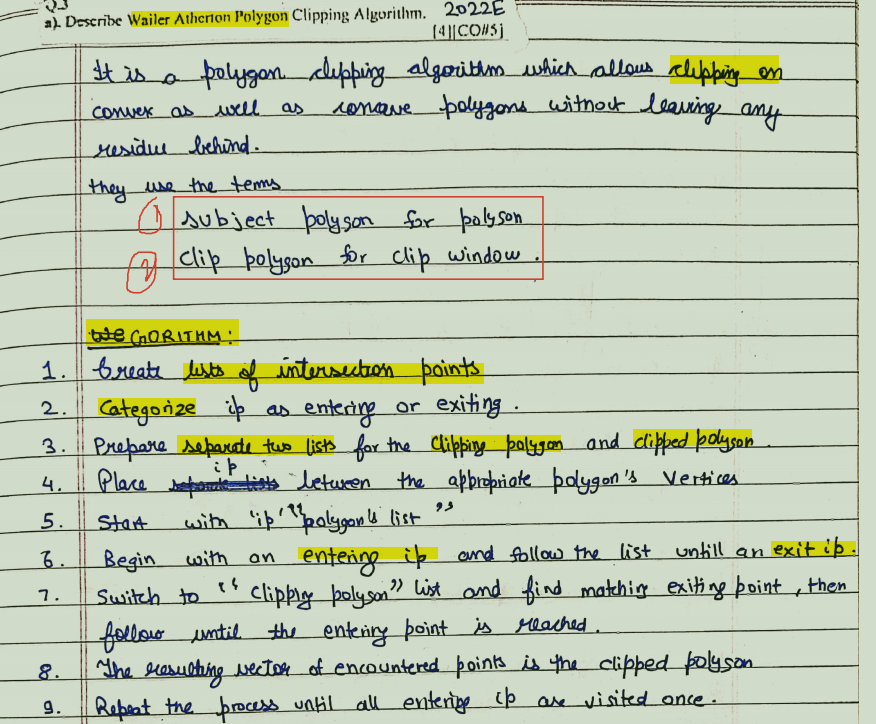 Q3
a). Describe Wailer Atherton Polygon Clipping Algorithm. 2022E
[4][CO#5]
It is a polygon clipping algorithm which allows clipping on
convex as well as concave polygons without leaving any
residue behind.
they use the terms
1 subject polyson for polyson
2 clip polyson for clip window.
GORITHM:
1. Create lists of intersection points
2. Categorize ip as entering or exiting.
3. Prepare separate two lists for the Clipping polygon and clipped polyson.
ip
4. Place between the appropriate polygon's vertices
5. Start with 'ip' "polygon's list"
6. Begin with an entering ip and follow the list untill an exit ip.
7. Switch to "Clipping polyson" list and find matching exiting point, then
follow until the entering point is reached.
8. The resulting vector of encountered points is the clipped polyson
9. Repeat the process until all entering ip are visited once.